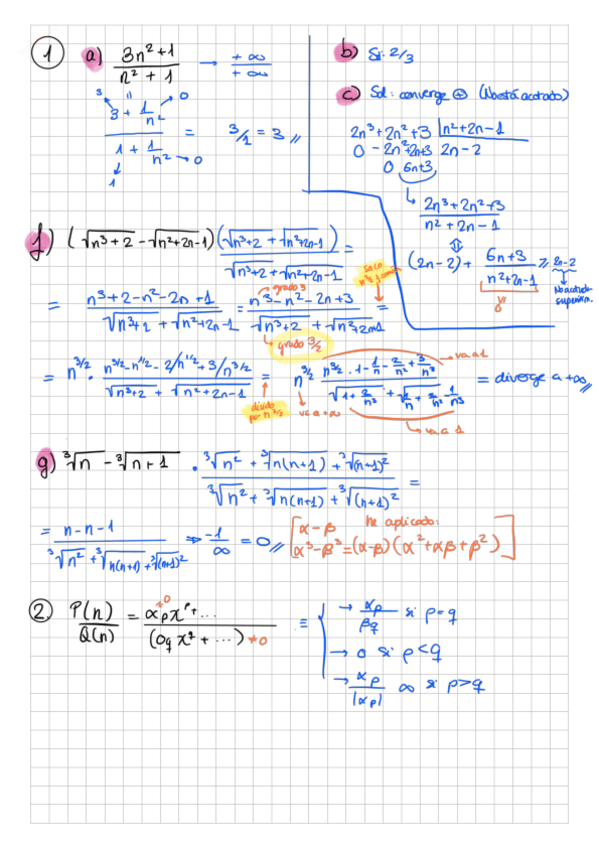 1 a) 3n²+1 / n²+1 → +∞ / +∞
3 + 1/n² → 0
1 + 1/n² → 0
1
= 3/1 = 3 //
b) Sol: 2/3
c) Sol: converge ⊕ (No está acotado)
2n³+2n²+3 | n²+2n-1
0 - 2n²+2n+3 2n-2
0 6n+3
2n³+2n²+3 / n²+2n-1
⇕
(2n-2) + 6n+3 / n²+2n-1 ≥ 2n-2
No acotado superiorm.
f) (√n³+2 - √n²+2n-1) (√n³+2 + √n²+2n-1) / √n³+2 + √n²+2n-1 =
= n³+2-n²-2n+1 / √n³+2 + √n²+2n-1 = n³-n²-2n+3 / √n³+2 + √n²+2n-1 =
grado 3
grado 3/2
Saco
= n^3/2 · n^3/2 - n^1/2 - 2/n^1/2 + 3/n^3/2 / √n³+2 + √n²+2n-1 = n^3/2 n^3/2 · 1 - 1/n - 2/n² + 3/n³ / √1+2/n³ + √1/n + 2/n² - 1/n³ = diverge a +∞ //
divido por n^3/2
va a +∞
va a 1
va a 1
g) ³√n - ³√n+1 · ³√n² + ³√n(n+1) + ³√(n+1)² / ³√n² + ³√n(n+1) + ³√(n+1)² =
= n-n-1 / ³√n² + ³√n(n+1) + ³√(n+1)² ⇒ -1/∞ = 0 //
he aplicado:
[α - β
α³-β³ = (α-β)(α²+αβ+β²)]
2 P(n) / Q(n) = αp x^p + ... / ( q x^q + ...) ≠0 ≡
≠0
→ αp / βq si p=q
→ 0 si p<q
→ αp / |αp| ∞ si p>q